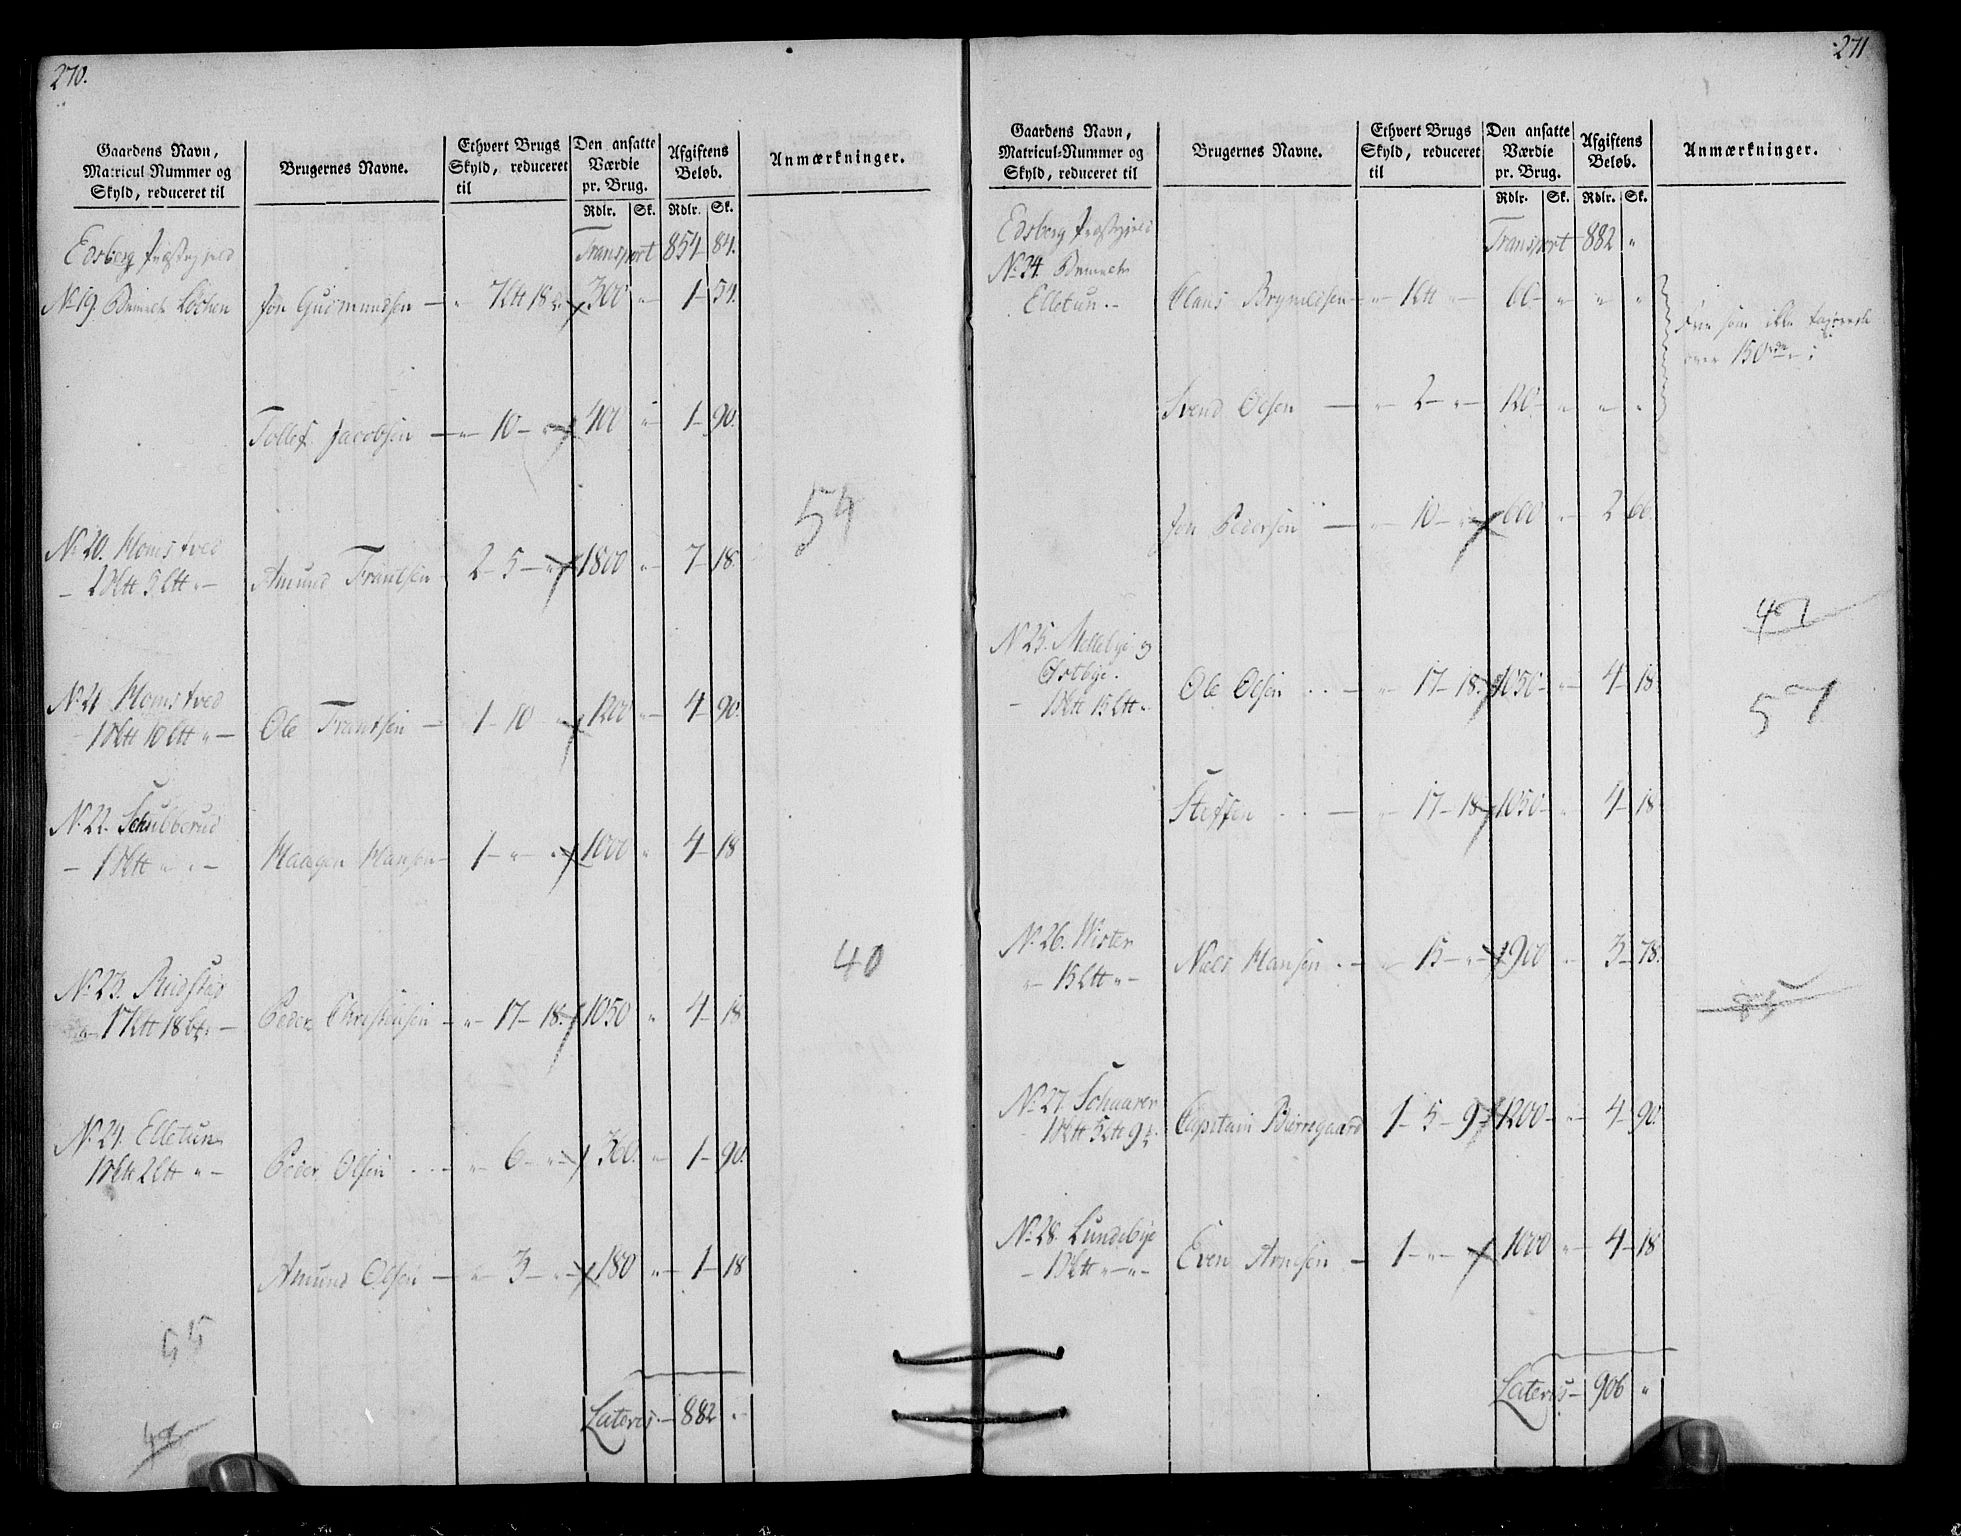 270.
Gaardens Navn, Matricul Nummer og Skyld, reduceret til | Brugernes Navne. | Ethvert Brugs Skyld, reduceret til | Den ansatte Værdie pr. Brug. Rdlr. Sk. | Afgiftens Beløb. Rdlr. Sk. | Anmærkninger.
Edsberg Præstegjeld Transport 854 84.
No 19. Løshen Jon Gudmundsen — " 7 18 300 " 1 54.
Tollef Jacobsen — " 10 — " 400 " 1 90.
54
No 20. Homstved
Amund Frantsen 2 — 5 — " 1800 " 7 18.
No 21 Homstved
Ole Frantsen — 1 — 10 1200 " 4 90.
No 22. Schulberud
Haagen Hansen — 1 — " 1000 " 4 18
40
No 23. Rudstad
Peder Christensen — " 17 — 18. 1050 " 4 18
No 24. Elletun
Peder Olsen — " 6 — " 360. " 1 90.
Amund Olsen — " 3 — " 180 " 1 18
55
Lateris — 882 "
271
Gaardens Navn, Matricul-Nummer og Skyld, reduceret til | Brugernes Navne. | Ethvert Brugs Skyld, reduceret til | Den ansatte Værdie pr. Brug. Rdlr. Sk. | Afgiftens Beløb. Rdlr. Sk. | Anmærkninger.
Edsberg Præstegjeld Transport 882 "
No 24.
Elletun. Claus Brynildsen — " 60 — " " "
som ikke
over 150
Svend Olsen — " 2 — " 120 — " " "
Jon Pedersen — " 10 — " 600 " 2 60.
No 25. Mellebye og
Østbye.
Ole Olsen — " 17 — 18. 1050 — " 4 18
57
Steffen — " 17 — 18 1050 — " 4 18
No 26. Wister
Niels Hansen — " 15 — " 900 " 3 78.
No 27. Schaarer
Capitain Bierregaard 1 — 5 — 9 1200 — " 4 90.
No 28. Lundebye
Even Arnesen — 1 — " 1000 " 4 18
Lateris — 906 "